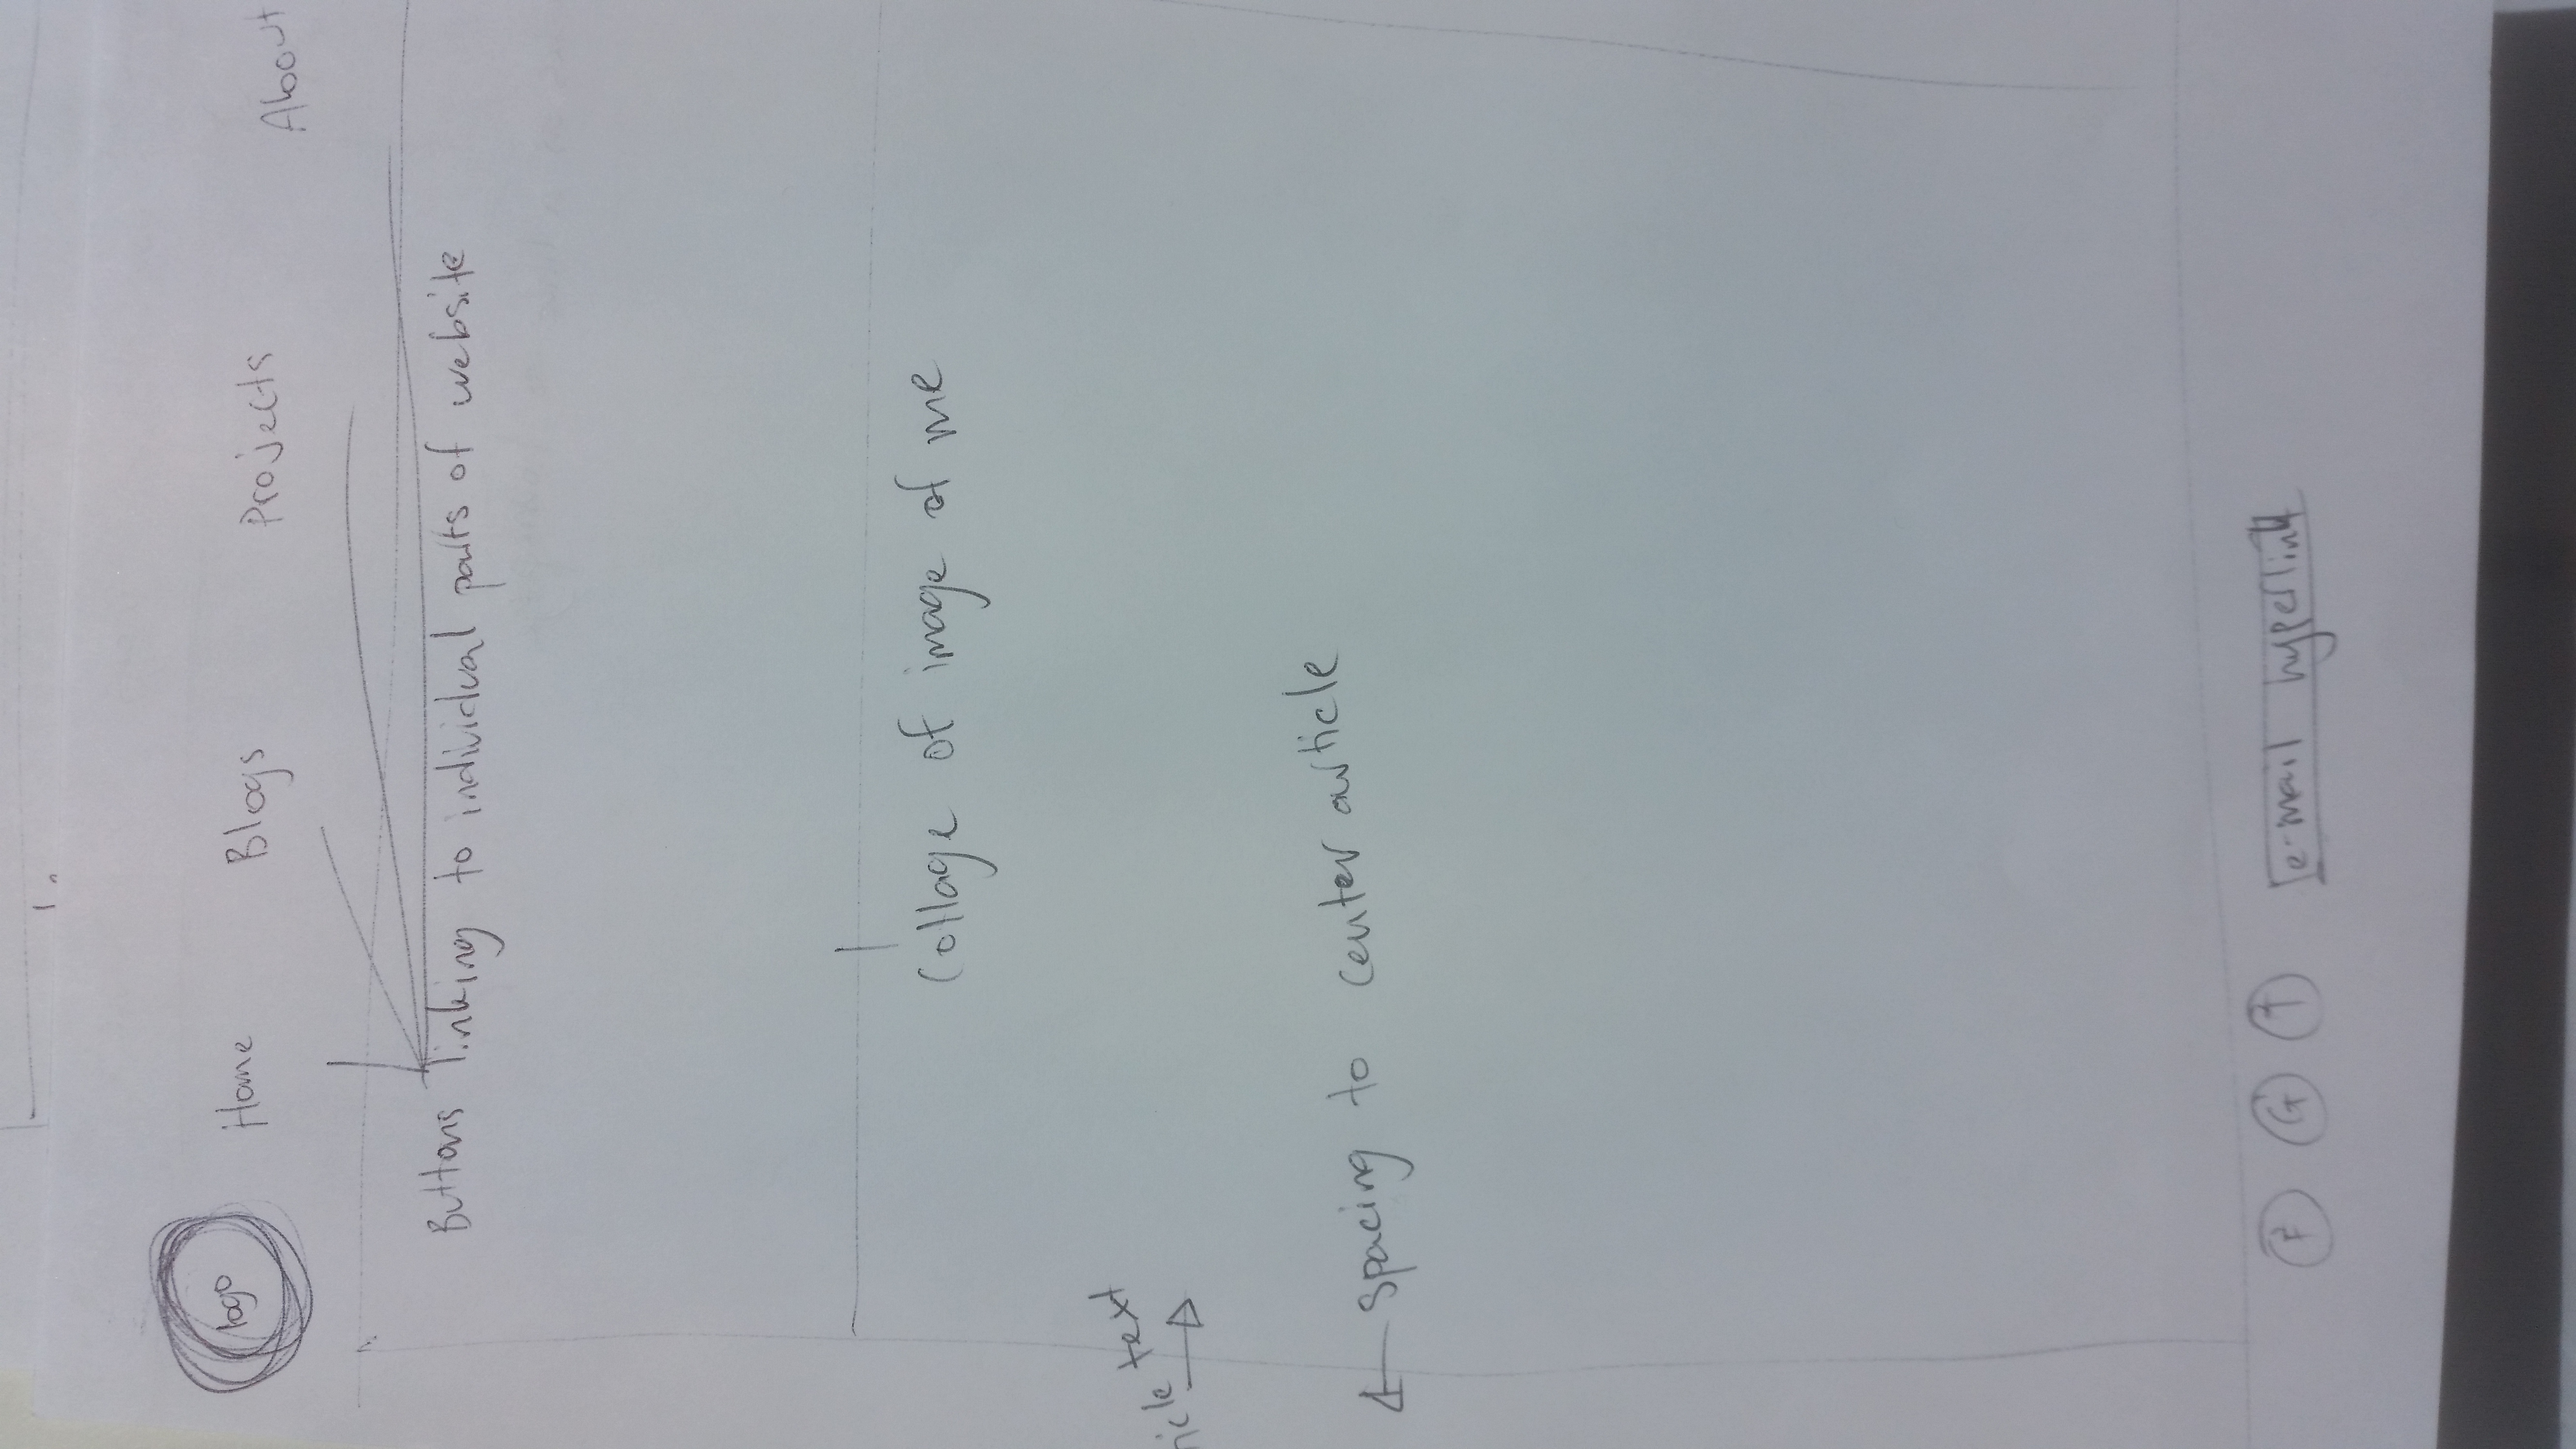 logo Home Blogs Projects About
Buttons linking to individual parts of website
Collage of image of me
text
spacing to center article
F G T e-mail hyperlink